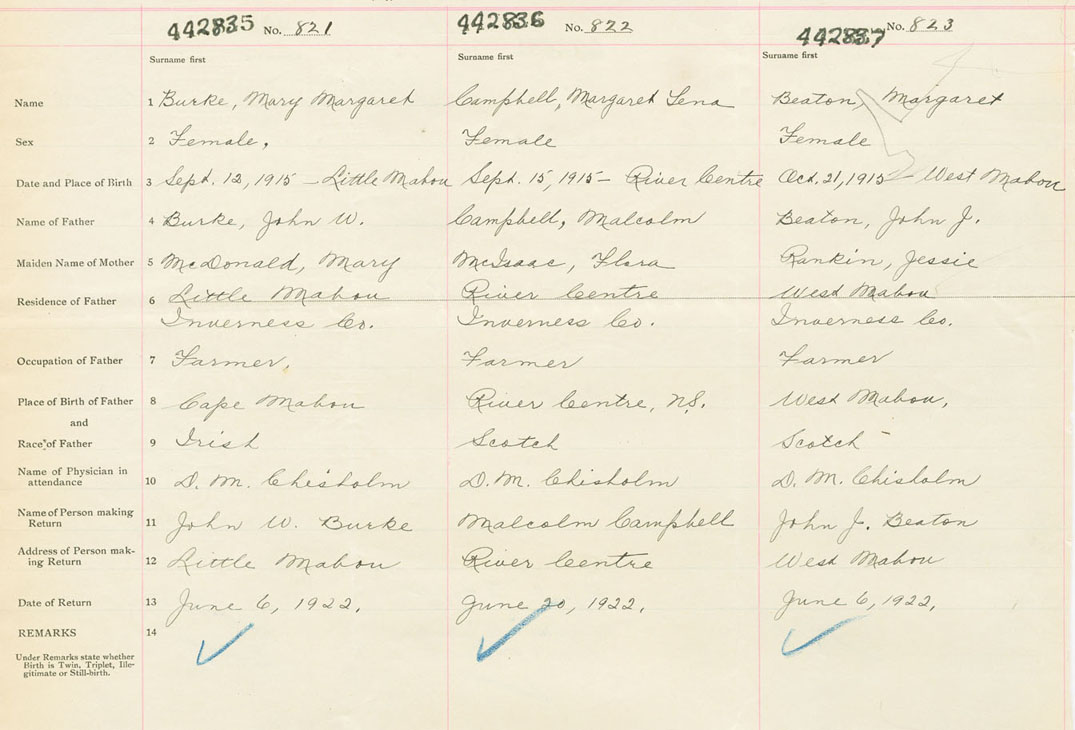 442835 No. 821 442836 No. 822 442837 No. 823
Surname first Surname first Surname first
Name 1 Burke, Mary Margaret Campbell, Margaret Lena Beaton, Margaret
Sex 2 Female, Female Female
Date and Place of Birth 3 Sept. 12, 1915 – Little Mabou Sept. 15, 1915 – River Centre Oct. 21, 1915 – West Mabou
Name of Father 4 Burke, John W. Campbell, Malcolm Beaton, John J.
Maiden Name of Mother 5 McDonald, Mary McIsaac, Flora Rankin, Jessie
Residence of Father 6 Little Mabou River Centre West Mabou
Inverness Co. Inverness Co. Inverness Co.
Occupation of Father 7 Farmer, Farmer Farmer
Place of Birth of Father 8 Cape Mabou River Centre, N.S. West Mabou,
and
Race of Father 9 Irish Scotch Scotch
Name of Physician in
attendance 10 D. M. Chisholm D. M. Chisholm D. M. Chisholm
Name of Person making
Return 11 John W. Burke Malcolm Campbell John J. Beaton
Address of Person mak-
ing Return 12 Little Mabou River Centre West Mabou
Date of Return 13 June 6, 1922. June 20, 1922. June 6, 1922.
REMARKS 14
Under Remarks state whether
Birth is Twin, Triplet, Ille-
gitimate or Still-birth.